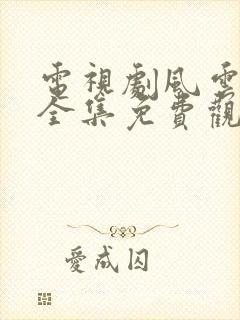 電視劇風雲
全集免費觀
愛成囚